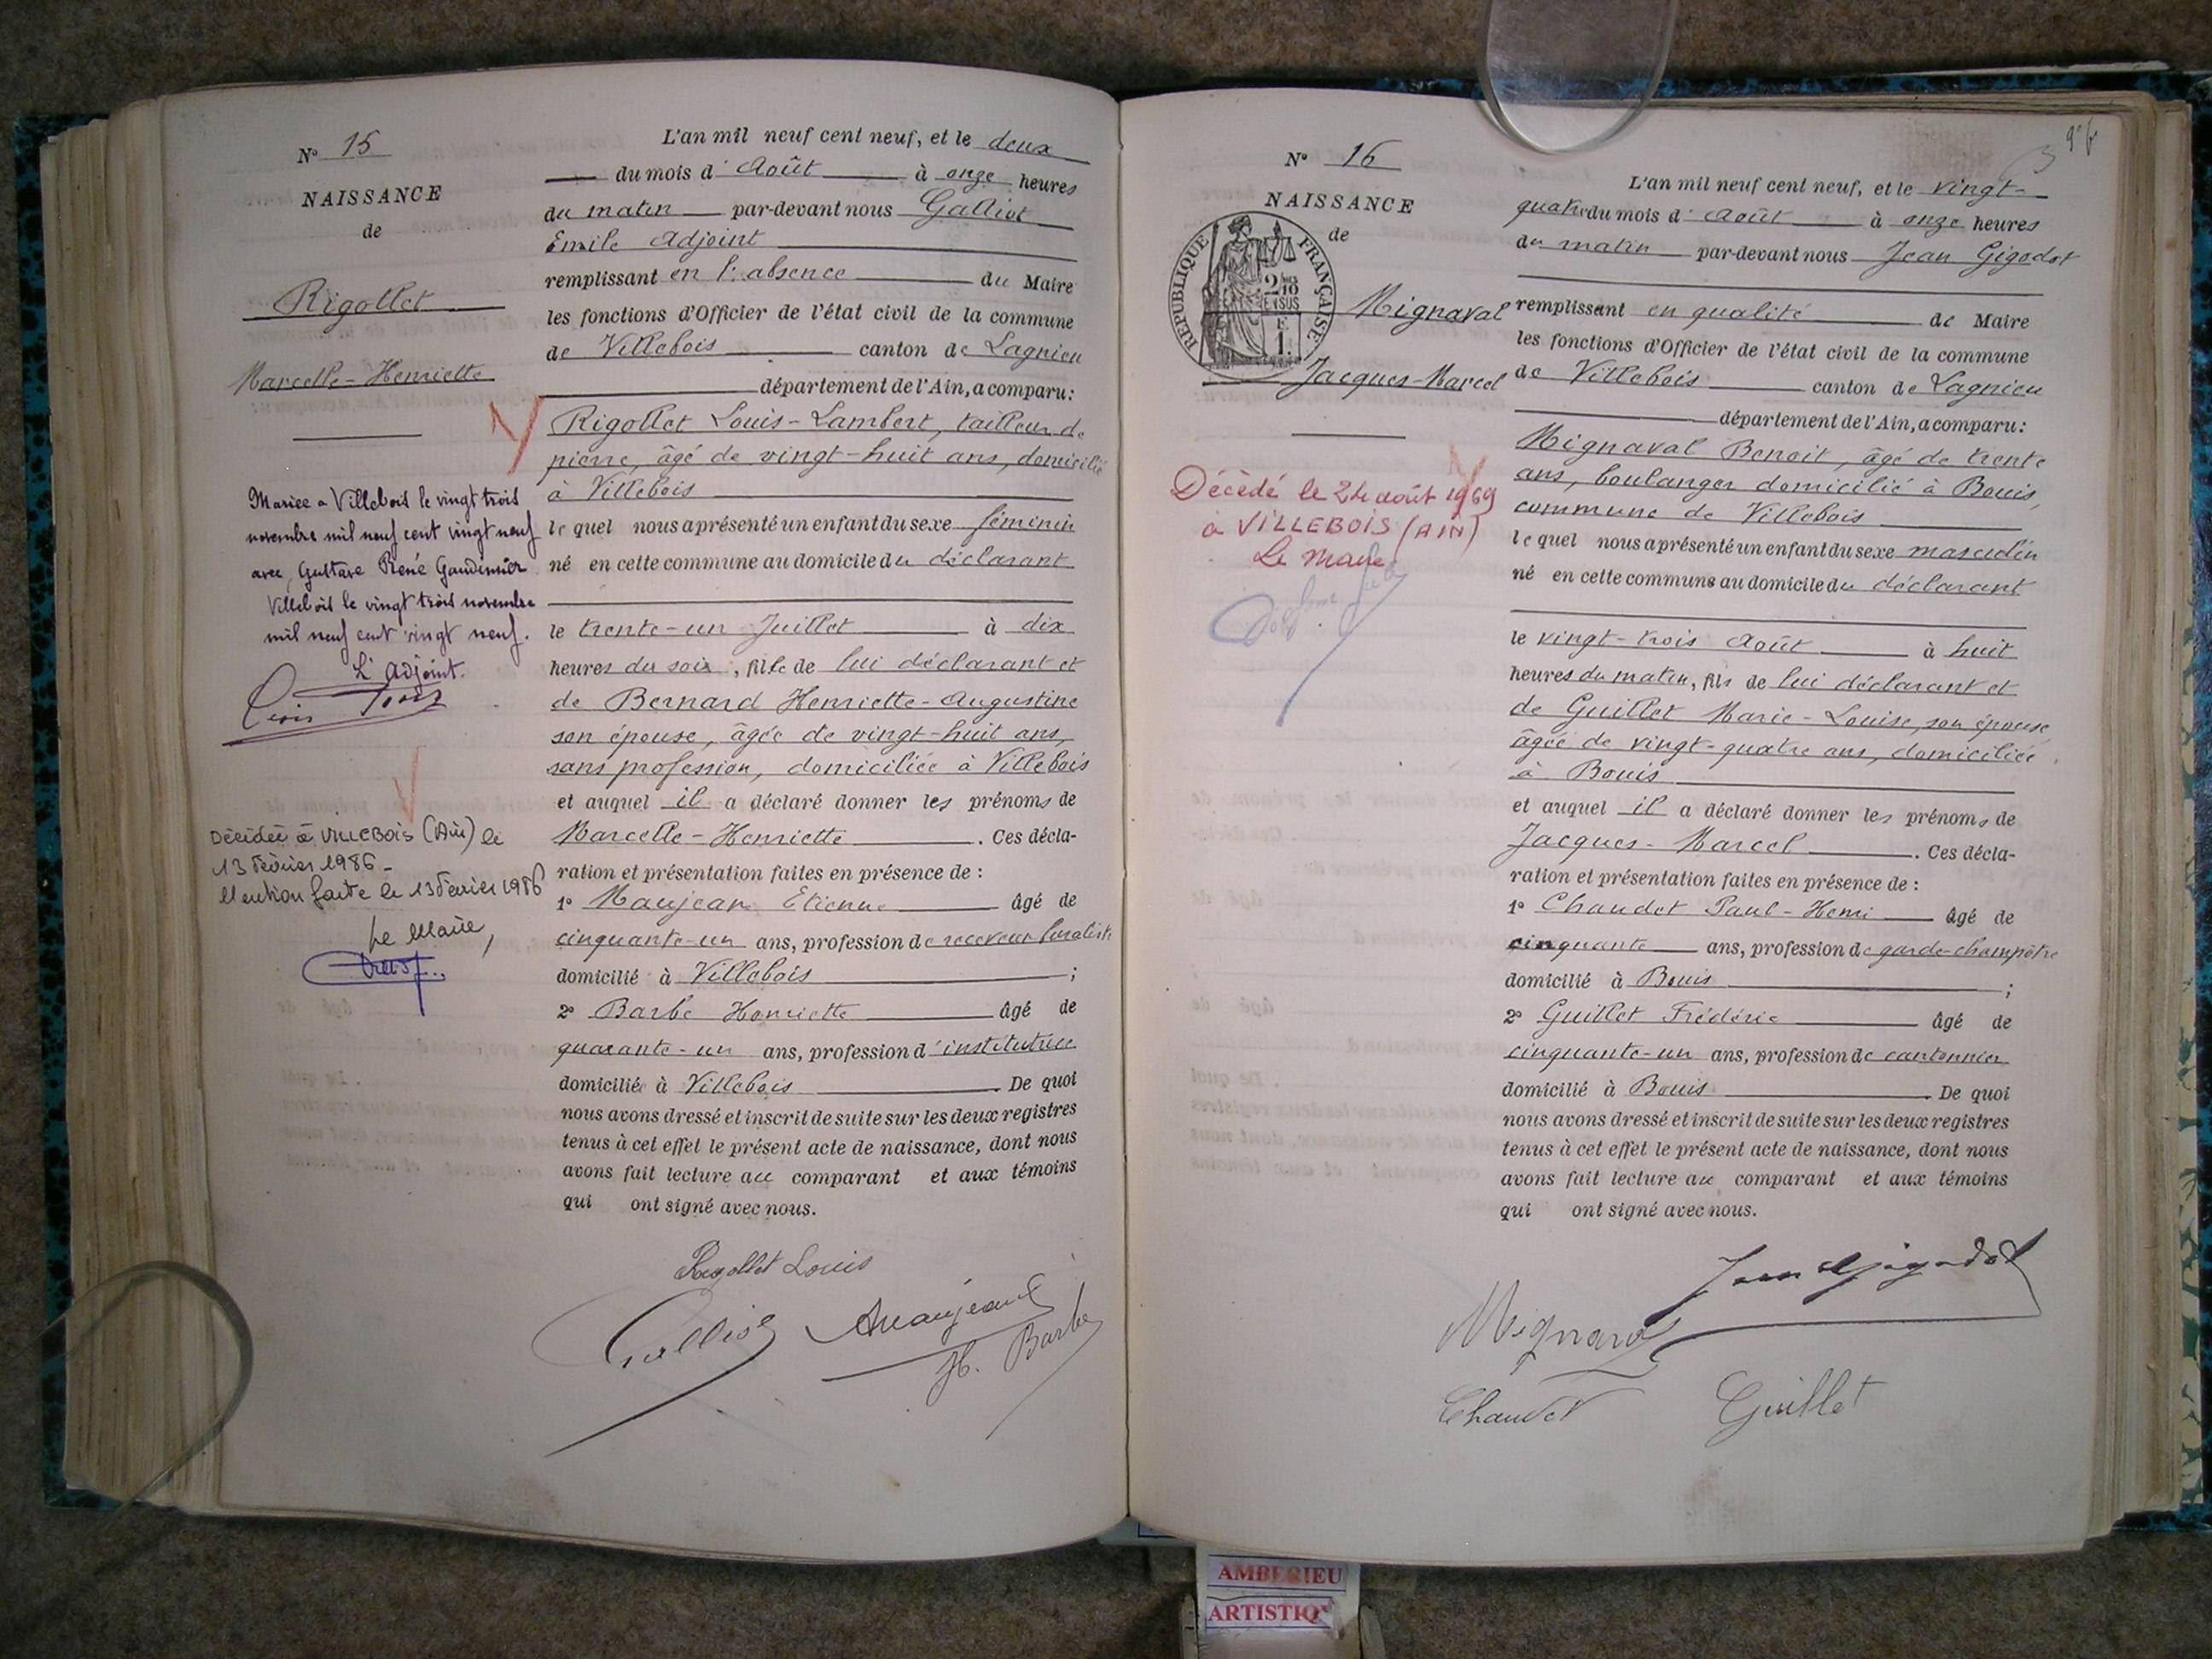 N° 15
NAISSANCE
de
Rigollet
Marcelle-Henriette
Mariée a Villebois le vingt trois
novembre mil neuf cent vingt neuf
avec Gustave René
Villebois le vingt trois novembre
mil neuf cent vingt neuf.
L'adjoint.
Décédée à VILLEBOIS (Ain) le
13 février 1986 -
Mention faite le 13 février 1986
Le Maire,
L'an mil neuf cent neuf, et le deux
du mois d'Août à onze heures
du matin par-devant nous Galliot
Emile Adjoint
remplissant en l'absence du Maire
les fonctions d'Officier de l'état civil de la commune
de Villebois canton de Lagnieu
département de l'Ain, a comparu:
Rigollet Louis-Lambert, tailleur de
pierre, âgé de vingt-huit ans, domicilié
à Villebois
lequel nous a présenté un enfant du sexe féminin
né en cette commune au domicile du déclarant
le trente-un Juillet à dix
heures du soir, fille de lui déclarant et
de Bernard Henriette-Augustine
son épouse, âgée de vingt-huit ans,
sans profession, domiciliée à Villebois
et auquel il a déclaré donner les prénoms de
Marcelle-Henriette. Ces décla-
ration et présentation faites en présence de :
1° Maujean Etienne âgé de
cinquante-un ans, profession de receveur buraliste
domicilié à Villebois ;
2° Barbe Henriette âgé de
quarante-un ans, profession d'institutrice
domiciliée à Villebois. De quoi
nous avons dressé et inscrit de suite sur les deux registres
tenus à cet effet le présent acte de naissance, dont nous
avons fait lecture au comparant et aux témoins
qui ont signé avec nous.
Rigollet Louis
Galliot Maujean
H. Barbe
N° 16
NAISSANCE
de
RÉPUBLIQUE FRANÇAISE
2/10 EN SUS
F. 1.
Mignaval
Jacques-Marcel
Décédé le 24 août 1969
à VILLEBOIS (AIN)
Le Maire
L'an mil neuf cent neuf, et le vingt-
quatre du mois d'Août à onze heures
du matin par-devant nous Jean Gigodot
remplissant en qualité de Maire
les fonctions d'Officier de l'état civil de la commune
de Villebois canton de Lagnieu
département de l'Ain, a comparu:
Mignaval Benoit, âgé de trente
ans, boulanger domicilié à Bouis,
commune de Villebois
lequel nous a présenté un enfant du sexe masculin
né en cette commune au domicile du déclarant
le vingt-trois Août à huit
heures du matin, fils de lui déclarant et
de Guillet Marie-Louise, son épouse
âgée de vingt-quatre ans, domiciliée
à Bouis
et auquel il a déclaré donner les prénoms de
Jacques-Marcel. Ces décla-
ration et présentation faites en présence de :
1° Chaudet Paul-Henri âgé de
cinquante ans, profession de garde-champêtre
domicilié à Bouis ;
2° Guillet Frédéric âgé de
cinquante-un ans, profession de cantonnier
domicilié à Bouis. De quoi
nous avons dressé et inscrit de suite sur les deux registres
tenus à cet effet le présent acte de naissance, dont nous
avons fait lecture au comparant et aux témoins
qui ont signé avec nous.
Jean Gigodot
Mignaval
Chaudet Guillet
AMBERIEU
ARTISTIQ